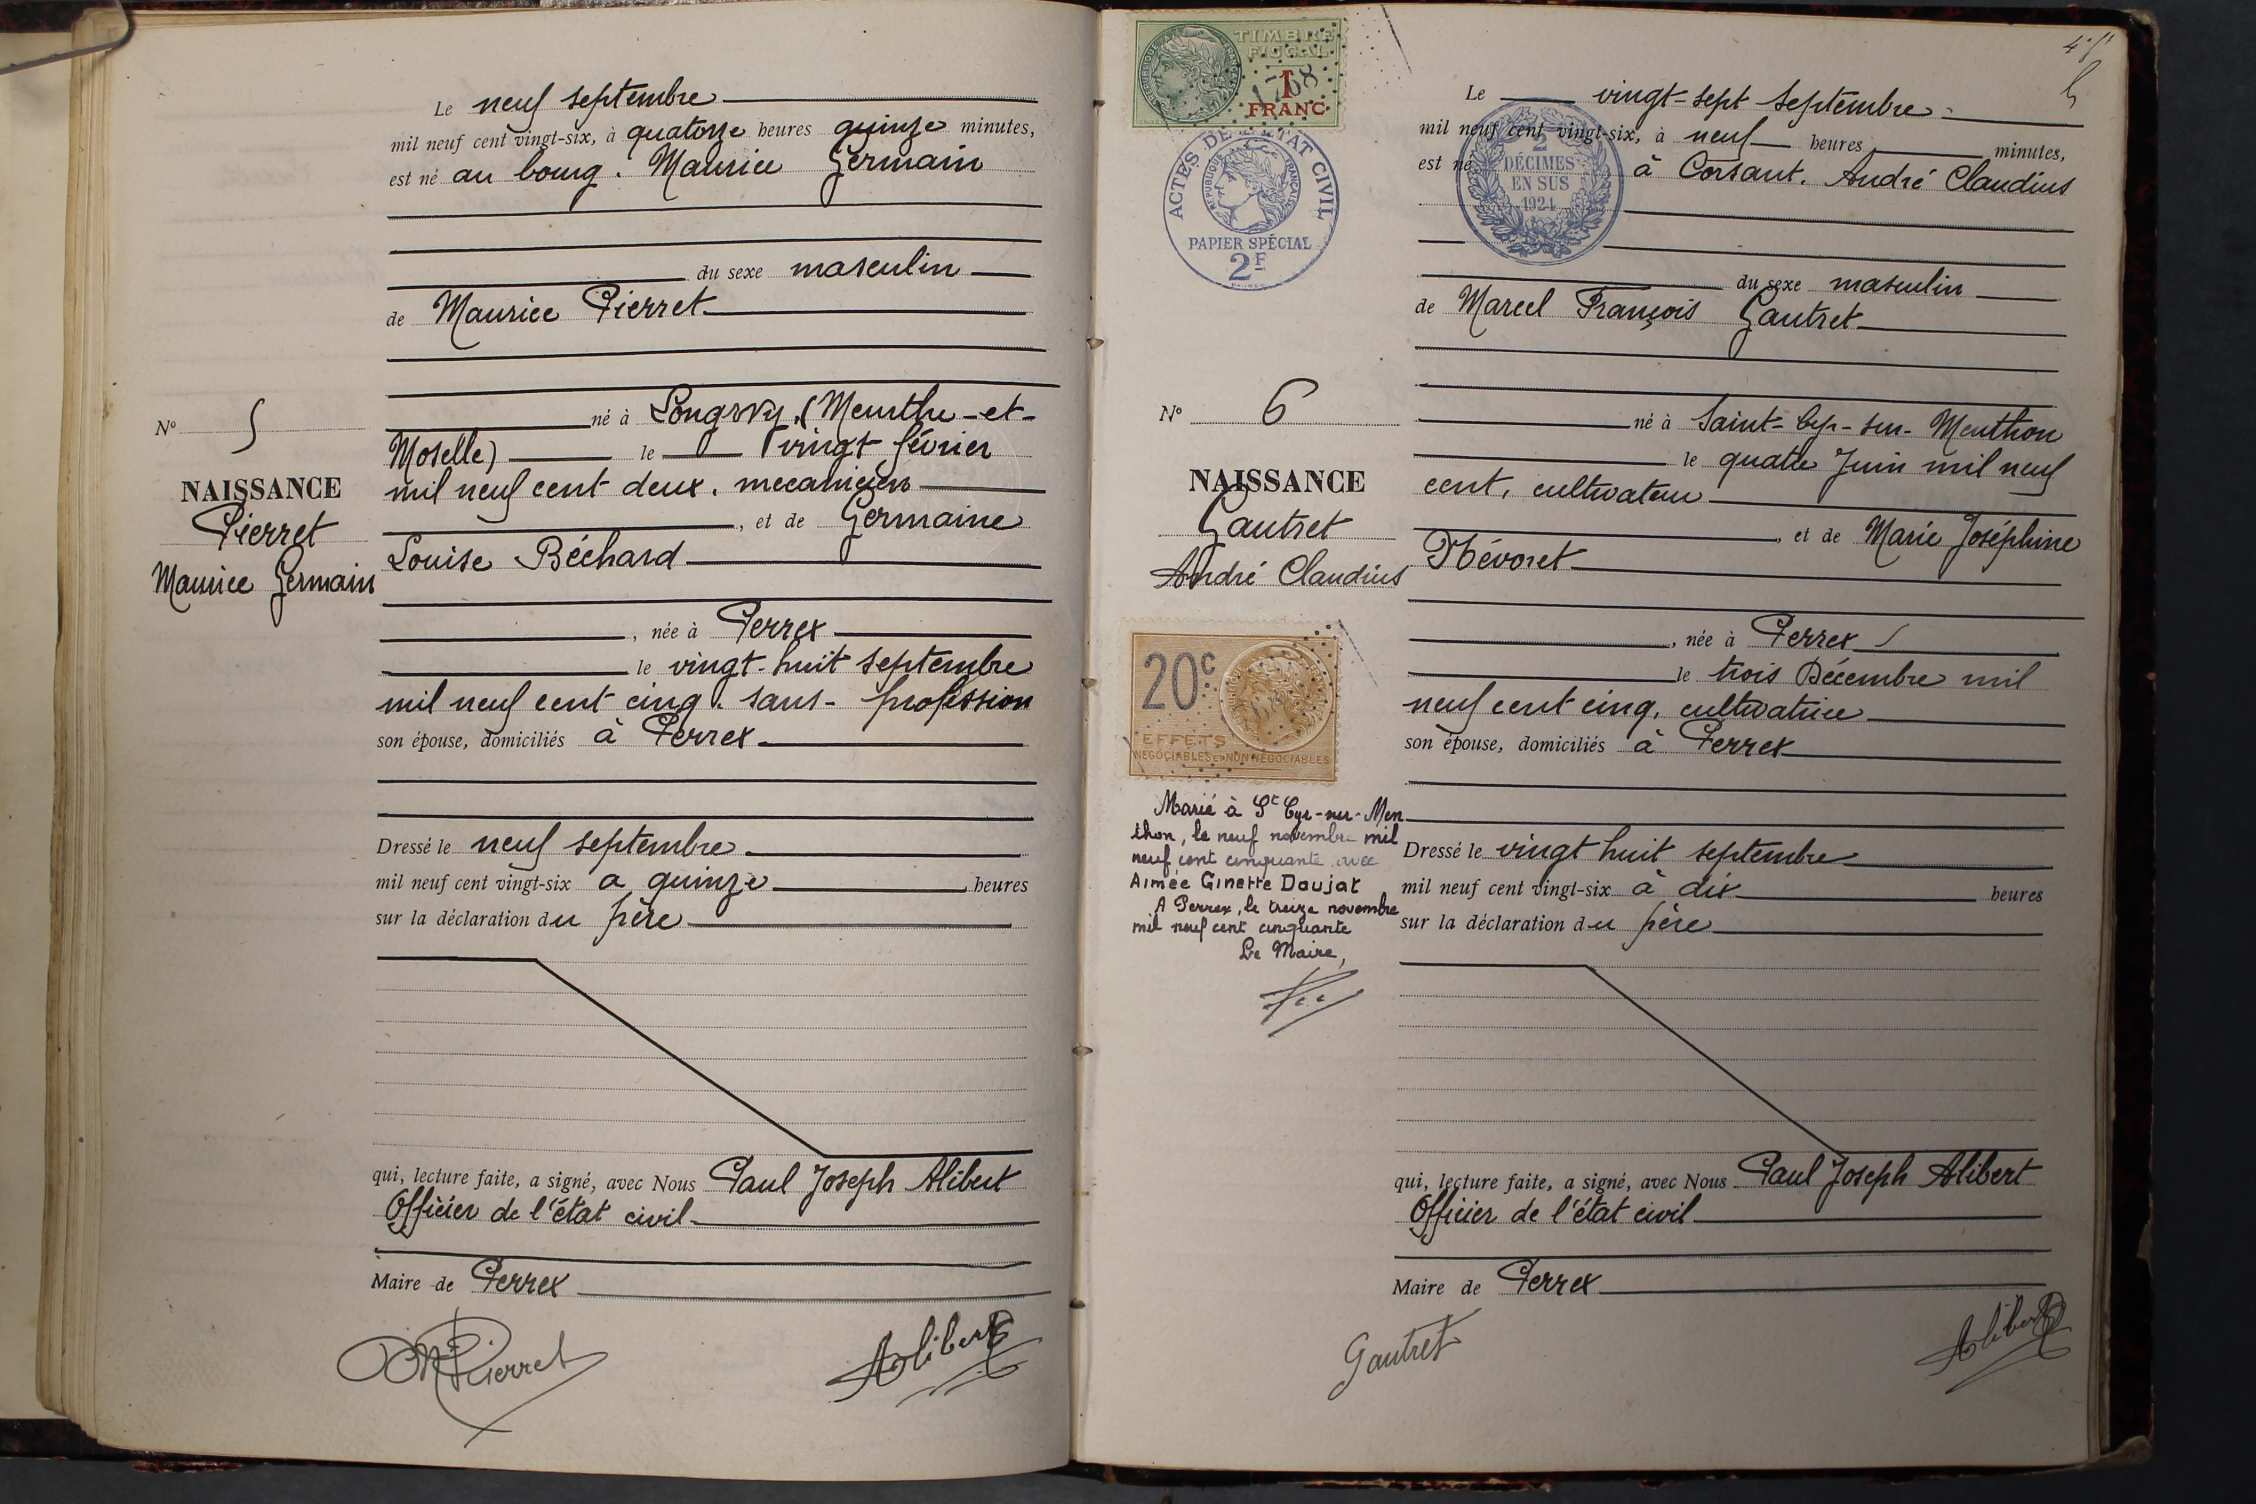 Le neuf septembre
mil neuf cent vingt-six, à quatorze heures quinze minutes,
est né au bourg. Maurice Germain
du sexe masculin
de Maurice Pierret
né à Longwy, (Meurthe-et-
Moselle) le vingt février
mil neuf cent deux. mecanicien
, et de Germaine
Louise Béchard
, née à Perrex
le vingt-huit septembre
mil neuf cent cinq. sans-profession
son épouse, domiciliés à Perrex
Dressé le neuf septembre
mil neuf cent vingt-six a quinze heures
sur la déclaration du père
qui, lecture faite, a signé, avec Nous Paul Joseph Alibert
Officier de l'état civil
Maire de Perrex
MPierret
Alibert
N° 5
NAISSANCE
Pierret
Maurice Germain
TIMBRE
FISCAL
1768
1
FRANC
ACTES DE L'ETAT CIVIL
REPUBLIQUE FRANÇAISE
PAPIER SPÉCIAL
2F
N° 6
NAISSANCE
Gautret
André Claudius
20c
EFFETS
NÉGOCIABLES ET NON NÉGOCIABLES
Marié à St Cyr-sur-Men
thon, le neuf novembre mil
neuf cent cinquante avec
Aimée Ginette Doujat
A Perrex, le treize novembre
mil neuf cent cinquante
Le Maire,
Le vingt-sept septembre
mil neuf cent vingt-six, à neuf heures minutes,
est né à Corsant. André Claudius
2
DÉCIMES
EN SUS
1924
du sexe masculin
de Marcel François Gautret
né à Saint-Cyr-sur-Menthon
le quatre Juin mil neuf
cent, cultivateur
, et de Marie Joséphine
Névoret
, née à Perrex
le trois Décembre mil
neuf cent cinq, cultivatrice
son épouse, domiciliés à Perrex
Dressé le vingt huit septembre
mil neuf cent vingt-six à dix heures
sur la déclaration du père
qui, lecture faite, a signé, avec Nous Paul Joseph Alibert
Officier de l'état civil
Maire de Perrex
Gautret
Alibert